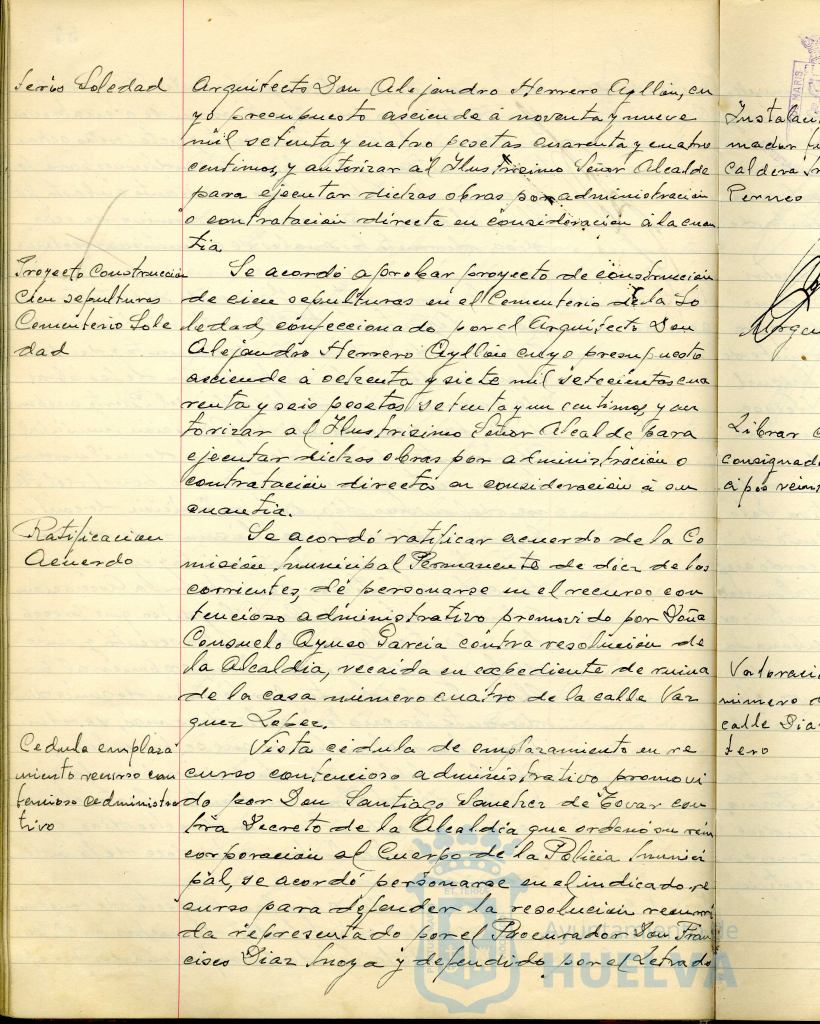 terio Soledad
Arquitecto Don Alejandro Herrero Ayllón, cu
yo presupuesto asciende á noventa y nueve
mil setenta y cuatro pesetas cuarenta y cuatro
centimos, y autorizar al Ilustrisimo Señor Alcalde
para ejecutar dichas obras por administracion
o contratacion directa en consideracion á la cuan
tia
Proyecto Construccion
cien sepulturas
Cementerio Sole
dad
Se acordó aprobar proyecto de construccion
de cien sepulturas en el Cementerio de la So
ledad, confeccionado por el Arquitecto Don
Alejandro Herrero Ayllón cuyo presupuesto
asciende á ochenta y siete mil setecientas cua
renta y seis pesetas setenta y un centimos, y au
torizar al Ilustrisimo Señor Alcalde para
ejecutar dichas obras por administración o
contratación directa en consideración á su
cuantia.
Ratificacion
Acuerdo
Se acordó ratificar acuerdo de la Co
misión Municipal Permanente de diez de los
corrientes, de personarse en el recurso con
tencioso administrativo promovido por Doña
Consuelo Ayuso Garcia contra resolución de
la Alcaldia, recaida en expediente de ruina
de la casa número cuatro de la calle Vaz
quez Lopez.
Cedula emplaza
miento recurso con
tencioso administra
tivo
Vista cédula de emplazamiento en re
curso contencioso administrativo promovi
do por Don Santiago Sanchez de Tovar con
tra Decreto de la Alcaldia que ordenó su rein
corporacion al Cuerpo de la Policia Munici
pal, se acordó personarse en el indicado re
curso para defender la resolución recurri
da representado por el Procurador Don Fran
cisco Diaz Moya y defendido por el Letrado
Ayuntamiento de
HUELVA
Instalaci
mador
caldera
Perneo
Librar
consignado
Valoraci
número
calle Dia
tero